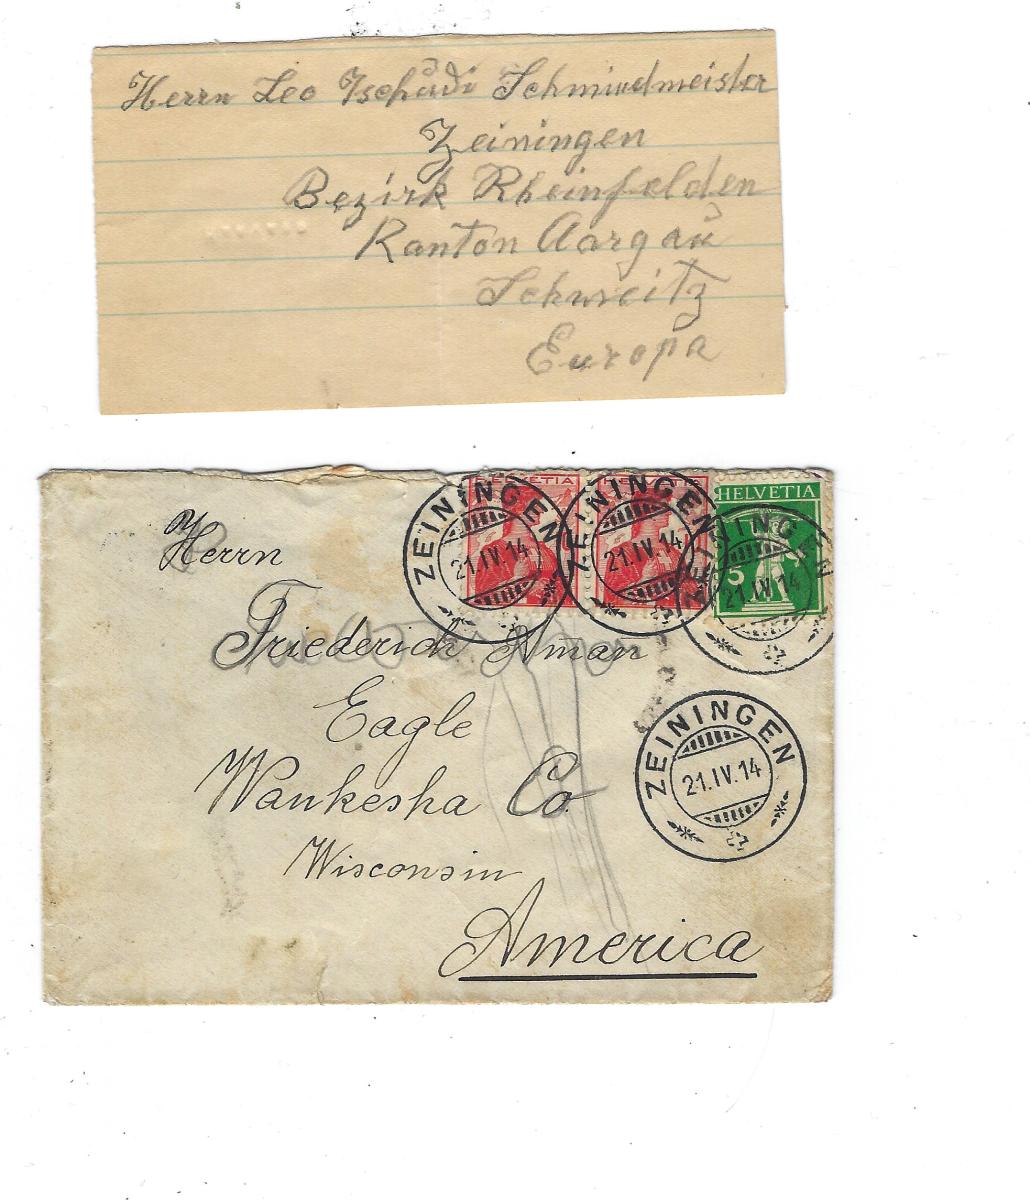 Herrn Leo Tschudi Schmiedmeister
Zeiningen
Bezirk Rheinfelden
Kanton Aargau
Schweitz
Europa
HELVETIA
HELVETIA
HELVETIA
5
ZEININGEN
21.IV.14
ZEININGEN
21.IV.14
ZEININGEN
21.IV.14
Herrn
Friederich Aman
Eagle
Waukesha Co.
Wisconsin
America
ZEININGEN
21.IV.14